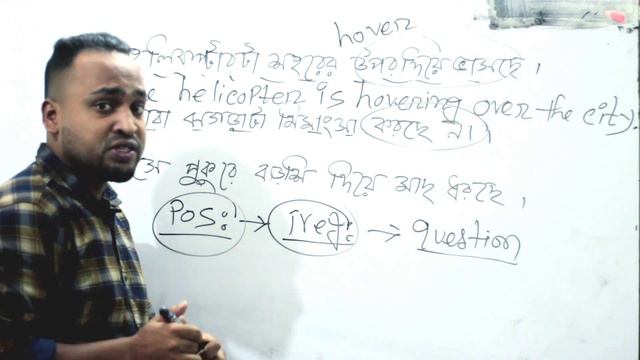 hover
হেলিকপ্টারটা শহরের উপর দিয়ে ভাসছে ।
helicopter is hovering over the city.
ঝগড়াটা মিমাংসা করছে না ।
পুকুরে বড়শি দিয়ে মাছ ধরছে ,
Pos: → neg: → question